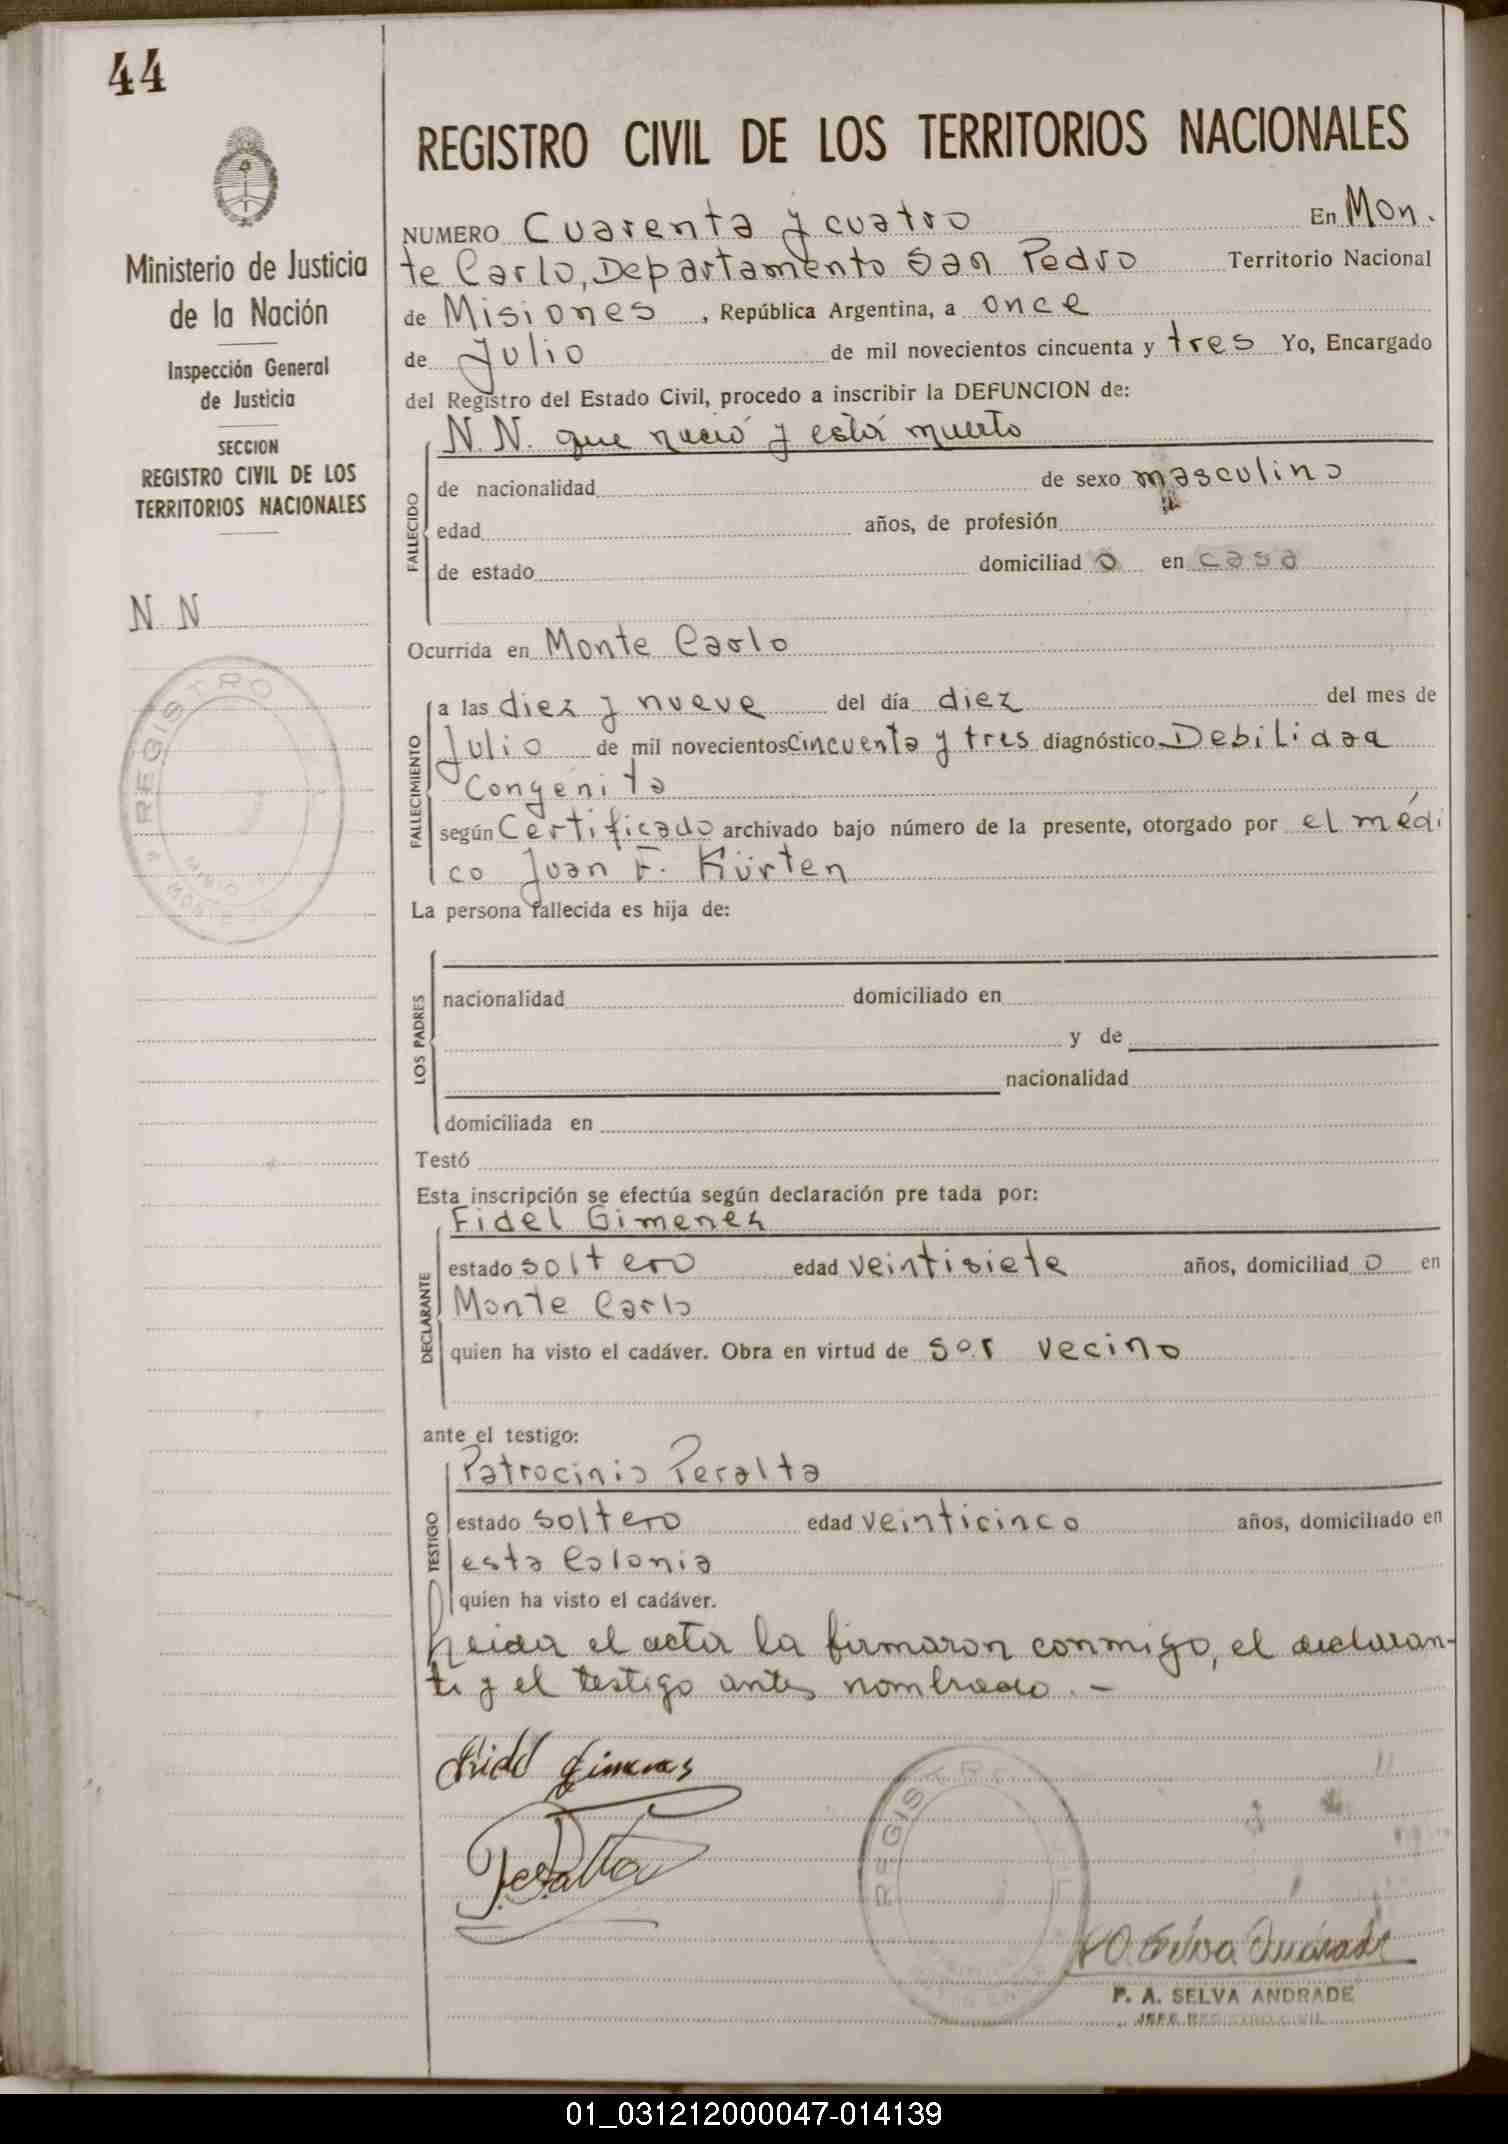 44
Ministerio de Justicia
de la Nación
Inspección General
de Justicia
SECCION
REGISTRO CIVIL DE LOS
TERRITORIOS NACIONALES
N N
REGISTRO
REGISTRO CIVIL DE LOS TERRITORIOS NACIONALES
NUMERO Cuarenta y cuatro En Mon.
te Carlo, Departamento San Pedro Territorio Nacional
de Misiones, República Argentina, a once
de Julio de mil novecientos cincuenta y tres Yo, Encargado
del Registro del Estado Civil, procedo a inscribir la DEFUNCION de:
N.N. que nació y está muerto
FALLECIDO
de nacionalidad de sexo masculino
edad años, de profesión
de estado domiciliad o en casa
Ocurrida en Monte Carlo
FALLECIMIENTO
a las diez y nueve del día diez del mes de
Julio de mil novecientos cincuenta y tres diagnóstico Debilidad
Congenita
según Certificado archivado bajo número de la presente, otorgado por el médi
co Juan F. Kürten
La persona fallecida es hija de:
LOS PADRES
nacionalidad domiciliado en
y de
nacionalidad
domiciliada en
Testó
Esta inscripción se efectúa según declaración pre tada por:
DECLARANTE
Fidel Gimenez
estado soltero edad veintisiete años, domiciliad o en
Monte Carlo
quien ha visto el cadáver. Obra en virtud de ser vecino
ante el testigo:
TESTIGO
Patrocinio Peralta
estado soltero edad veinticinco años, domiciliado en
esta Colonia
quien ha visto el cadáver.
Leida el acta la firmaron conmigo, el declaran-
te y el testigo antes nombrado. -
Fidel Gimenes
Peralta
REGISTR
Selva Andrade
P. A. SELVA ANDRADE
JEFE REGISTRO CIVIL
01_031212000047-014139